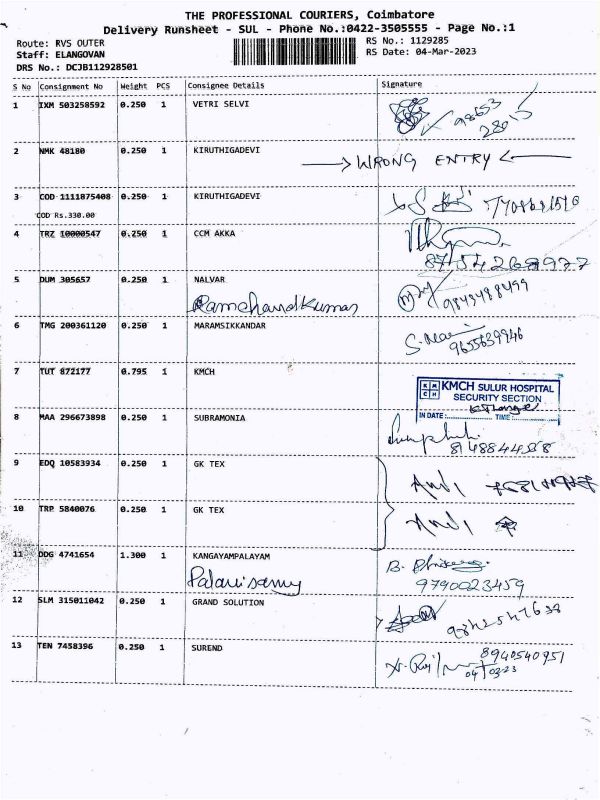 THE PROFESSIONAL COURIERS, Coimbatore
Delivery Runsheet - SUL - Phone No.:0422-3505555 - Page No.:1
Route: RVS OUTER
RS No.: 1129285
Staff: ELANGOVAN
RS Date: 04-Mar-2023
DRS No.: DCJB112928501
S No Consignment No Weight PCS Consignee Details Signature
1 IXM 503258592 0.250 1 VETRI SELVI
2 NMK 48180 0.250 1 KIRUTHIGADEVI WRONG ENTRY
3 COD 1111875408 0.250 1 KIRUTHIGADEVI
COD Rs.330.00
4 TRZ 10000547 0.250 1 CCM AKKA
8754268977
5 DUM 305657 0.250 1 NALVAR
Ramchandkumar 9843488499
6 TMG 200361120 0.250 1 MARAMSIKKANDAR
9655639946
7 TUT 872177 0.795 1 KMCH
KM CH KMCH SULUR HOSPITAL
SECURITY SECTION
IN DATE: TIME
8 MAA 296673898 0.250 1 SUBRAMONIA
9 EDQ 10583934 0.250 1 GK TEX
10 TRP 5840076 0.250 1 GK TEX
11 DDG 4741654 1.300 1 KANGAYAMPALAYAM
Palanisamy 9790023459
12 SLM 315011042 0.250 1 GRAND SOLUTION
13 TEN 7458396 0.250 1 SUREND 8940540951
04/03/23